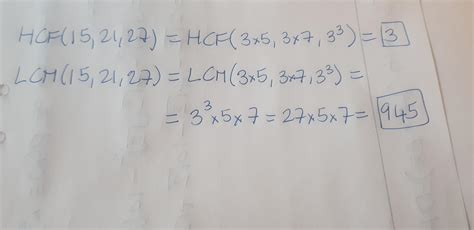 HCF(15,21,27) = HCF(3×5, 3×7, 3³) = 3
LCM(15,21,27) = LCM(3×5, 3×7, 3³) =
= 3³×5×7 = 27×5×7 = 945